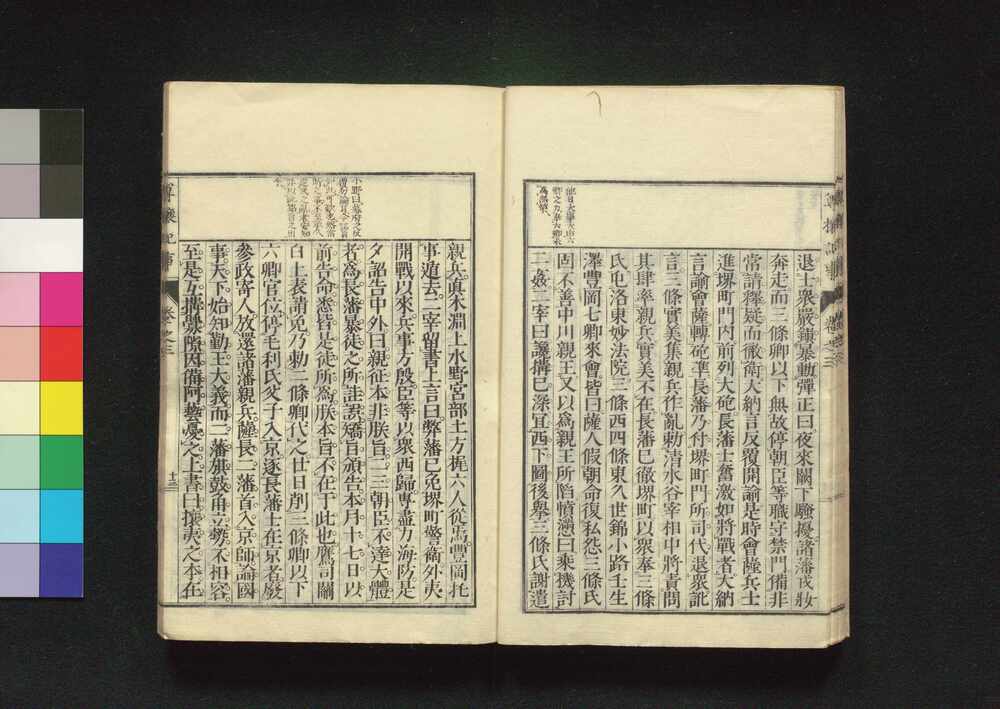 池日大擧大由六
卿之力奉六卿來
為禹禎
退士衆嚴鎮暴動彈正曰夜來闕下騷擾諸藩戎妝
奔走而三條卿以下無故停朝臣等職守禁門備非
常請釋疑而徹衛大納言反覆開諭是時會薩兵士
進堺町門內前列大砲長藩士奮激如將戰者大納
言諭會薩轉砲準長藩乃付堺町門所司代退衆訛
言三條實美集親兵作亂勅清水谷宰相中將責問
其肆率親兵實美不在長藩已徹堺町以衆奉三條
氏屯洛東妙法院三條西四條東久世錦小路壬生
澤豐岡七卿來會皆曰薩人假朝命復私怨三條氏
固不善中川親王又以為親王所陷憤懣曰乘機討
二姦二宰曰讒搆已深宜西下圖後擧三條氏謝遣
親兵真木淵上水野宮部土方㨗六人從焉豐岡托
事遁去二宰留書上言曰弊藩已免堺町警衛外夷
開戰以來兵事方殷臣等以衆西歸專盡力海防是
夕詔告中外曰親征本非朕旨二三朝臣不達大體
者為長藩暴徒之所詿誤矯旨頒告本月十七日以
前告命悉皆是徒所為朕本旨不在于此也鷹司關
白上表請免乃勅二條卿代之廿日削三條卿以下
六卿官位停毛利氏父子入京逐長藩士在京者廢
參政寄人放還諸藩親兵薩長二藩首入京師論國
事天下始知勤王大義而二藩旗鼓角立勢不相容
至是互搆釁隙因備阿藝憂之上書曰攘夷之本在
尊攘紀事
卷之三
十三